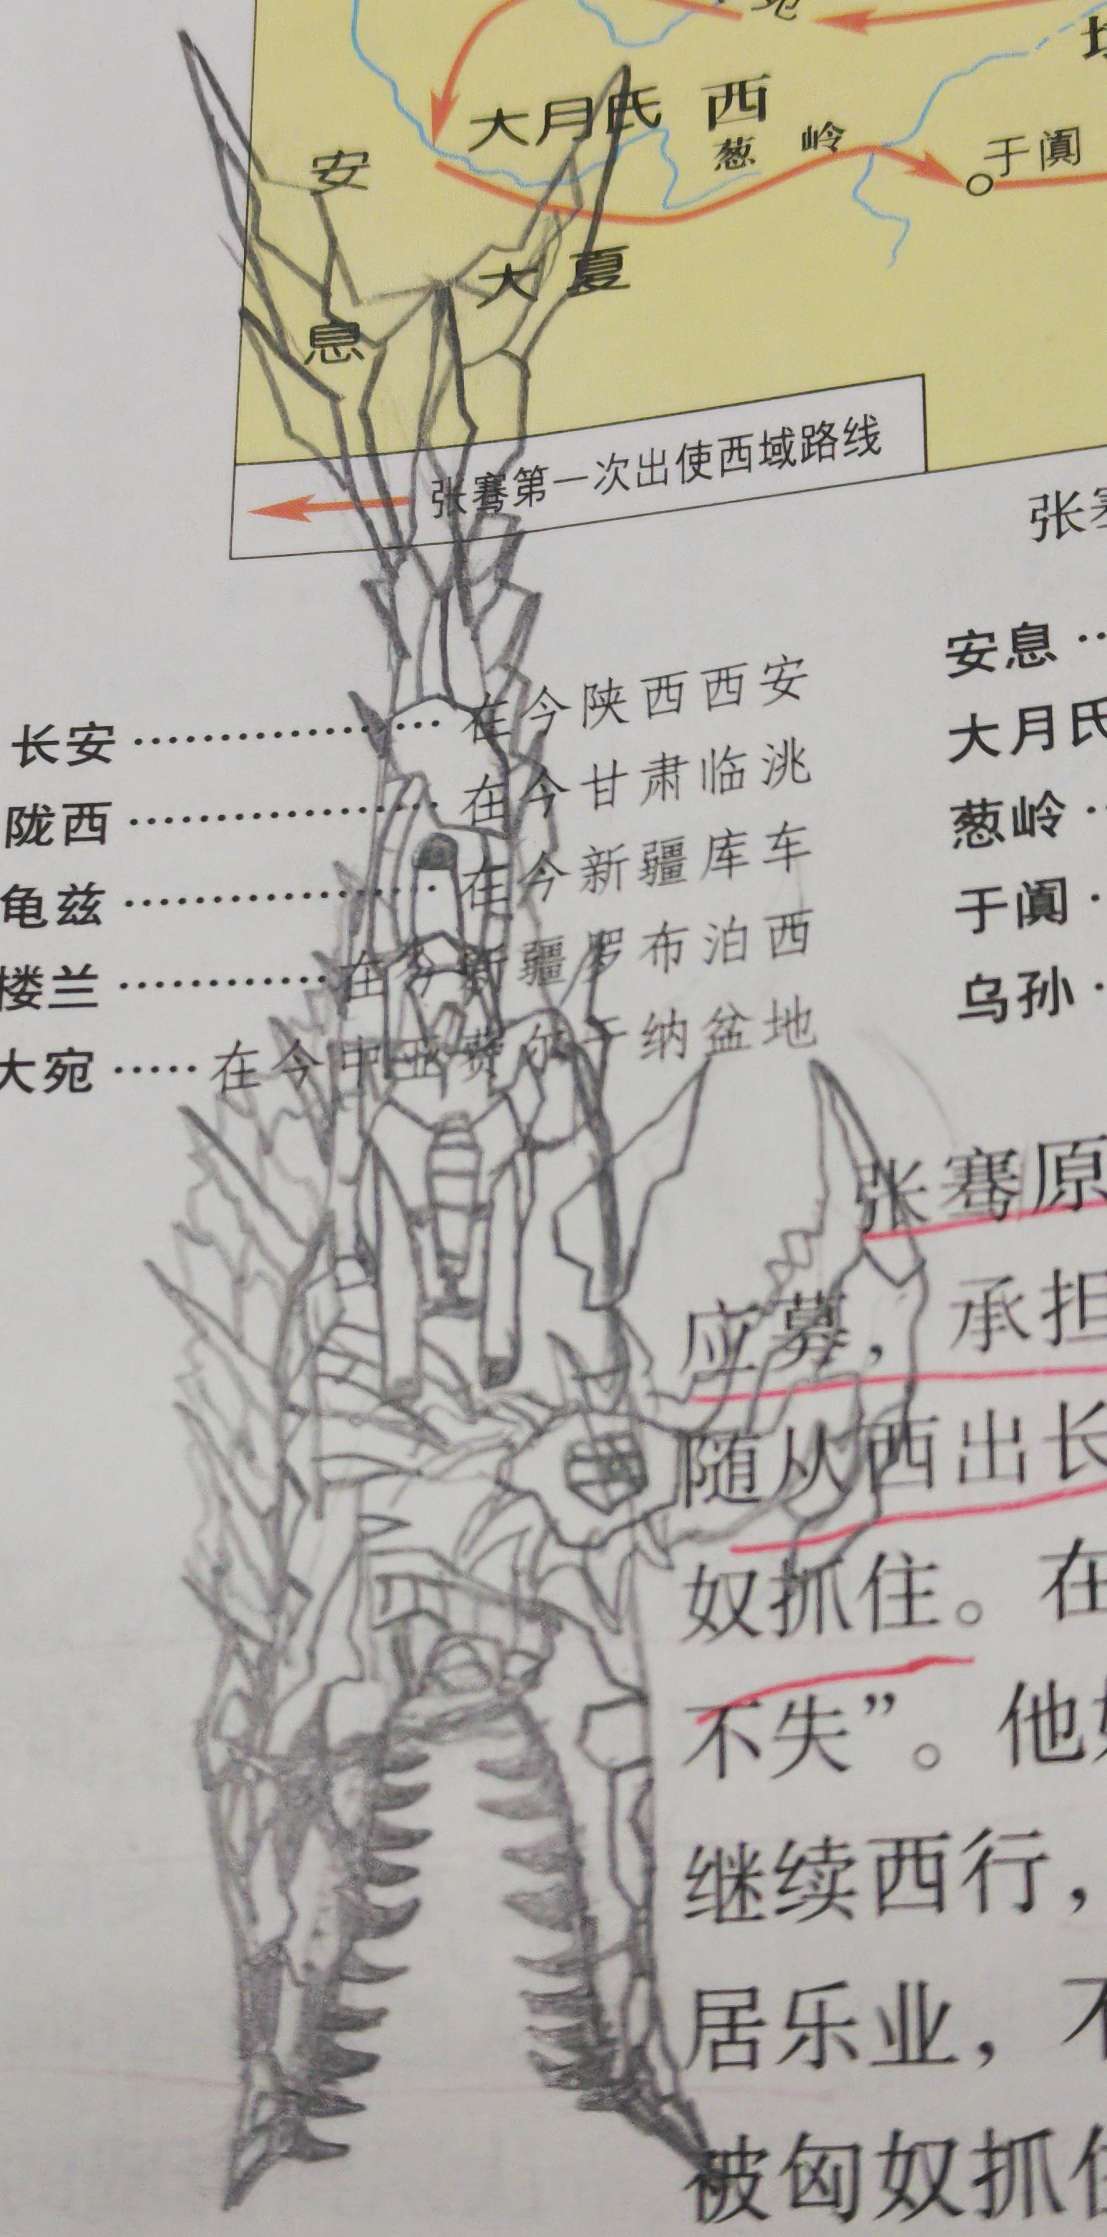 大月氏 西
葱 岭
于阗
安
大夏
息
张骞第一次出使西域路线
张
长安……………………在今陕西西安
陇西……………………在今甘肃临洮
龟兹……………………在今新疆库车
楼兰……………在今新疆罗布泊西
大宛……在今中亚费尔干纳盆地
安息……
大月氏
葱岭…
于阗…
乌孙…
张骞原
应募，承担
随从西出长
奴抓住。在
不失”。他
继续西行，
居乐业，不
被匈奴抓住